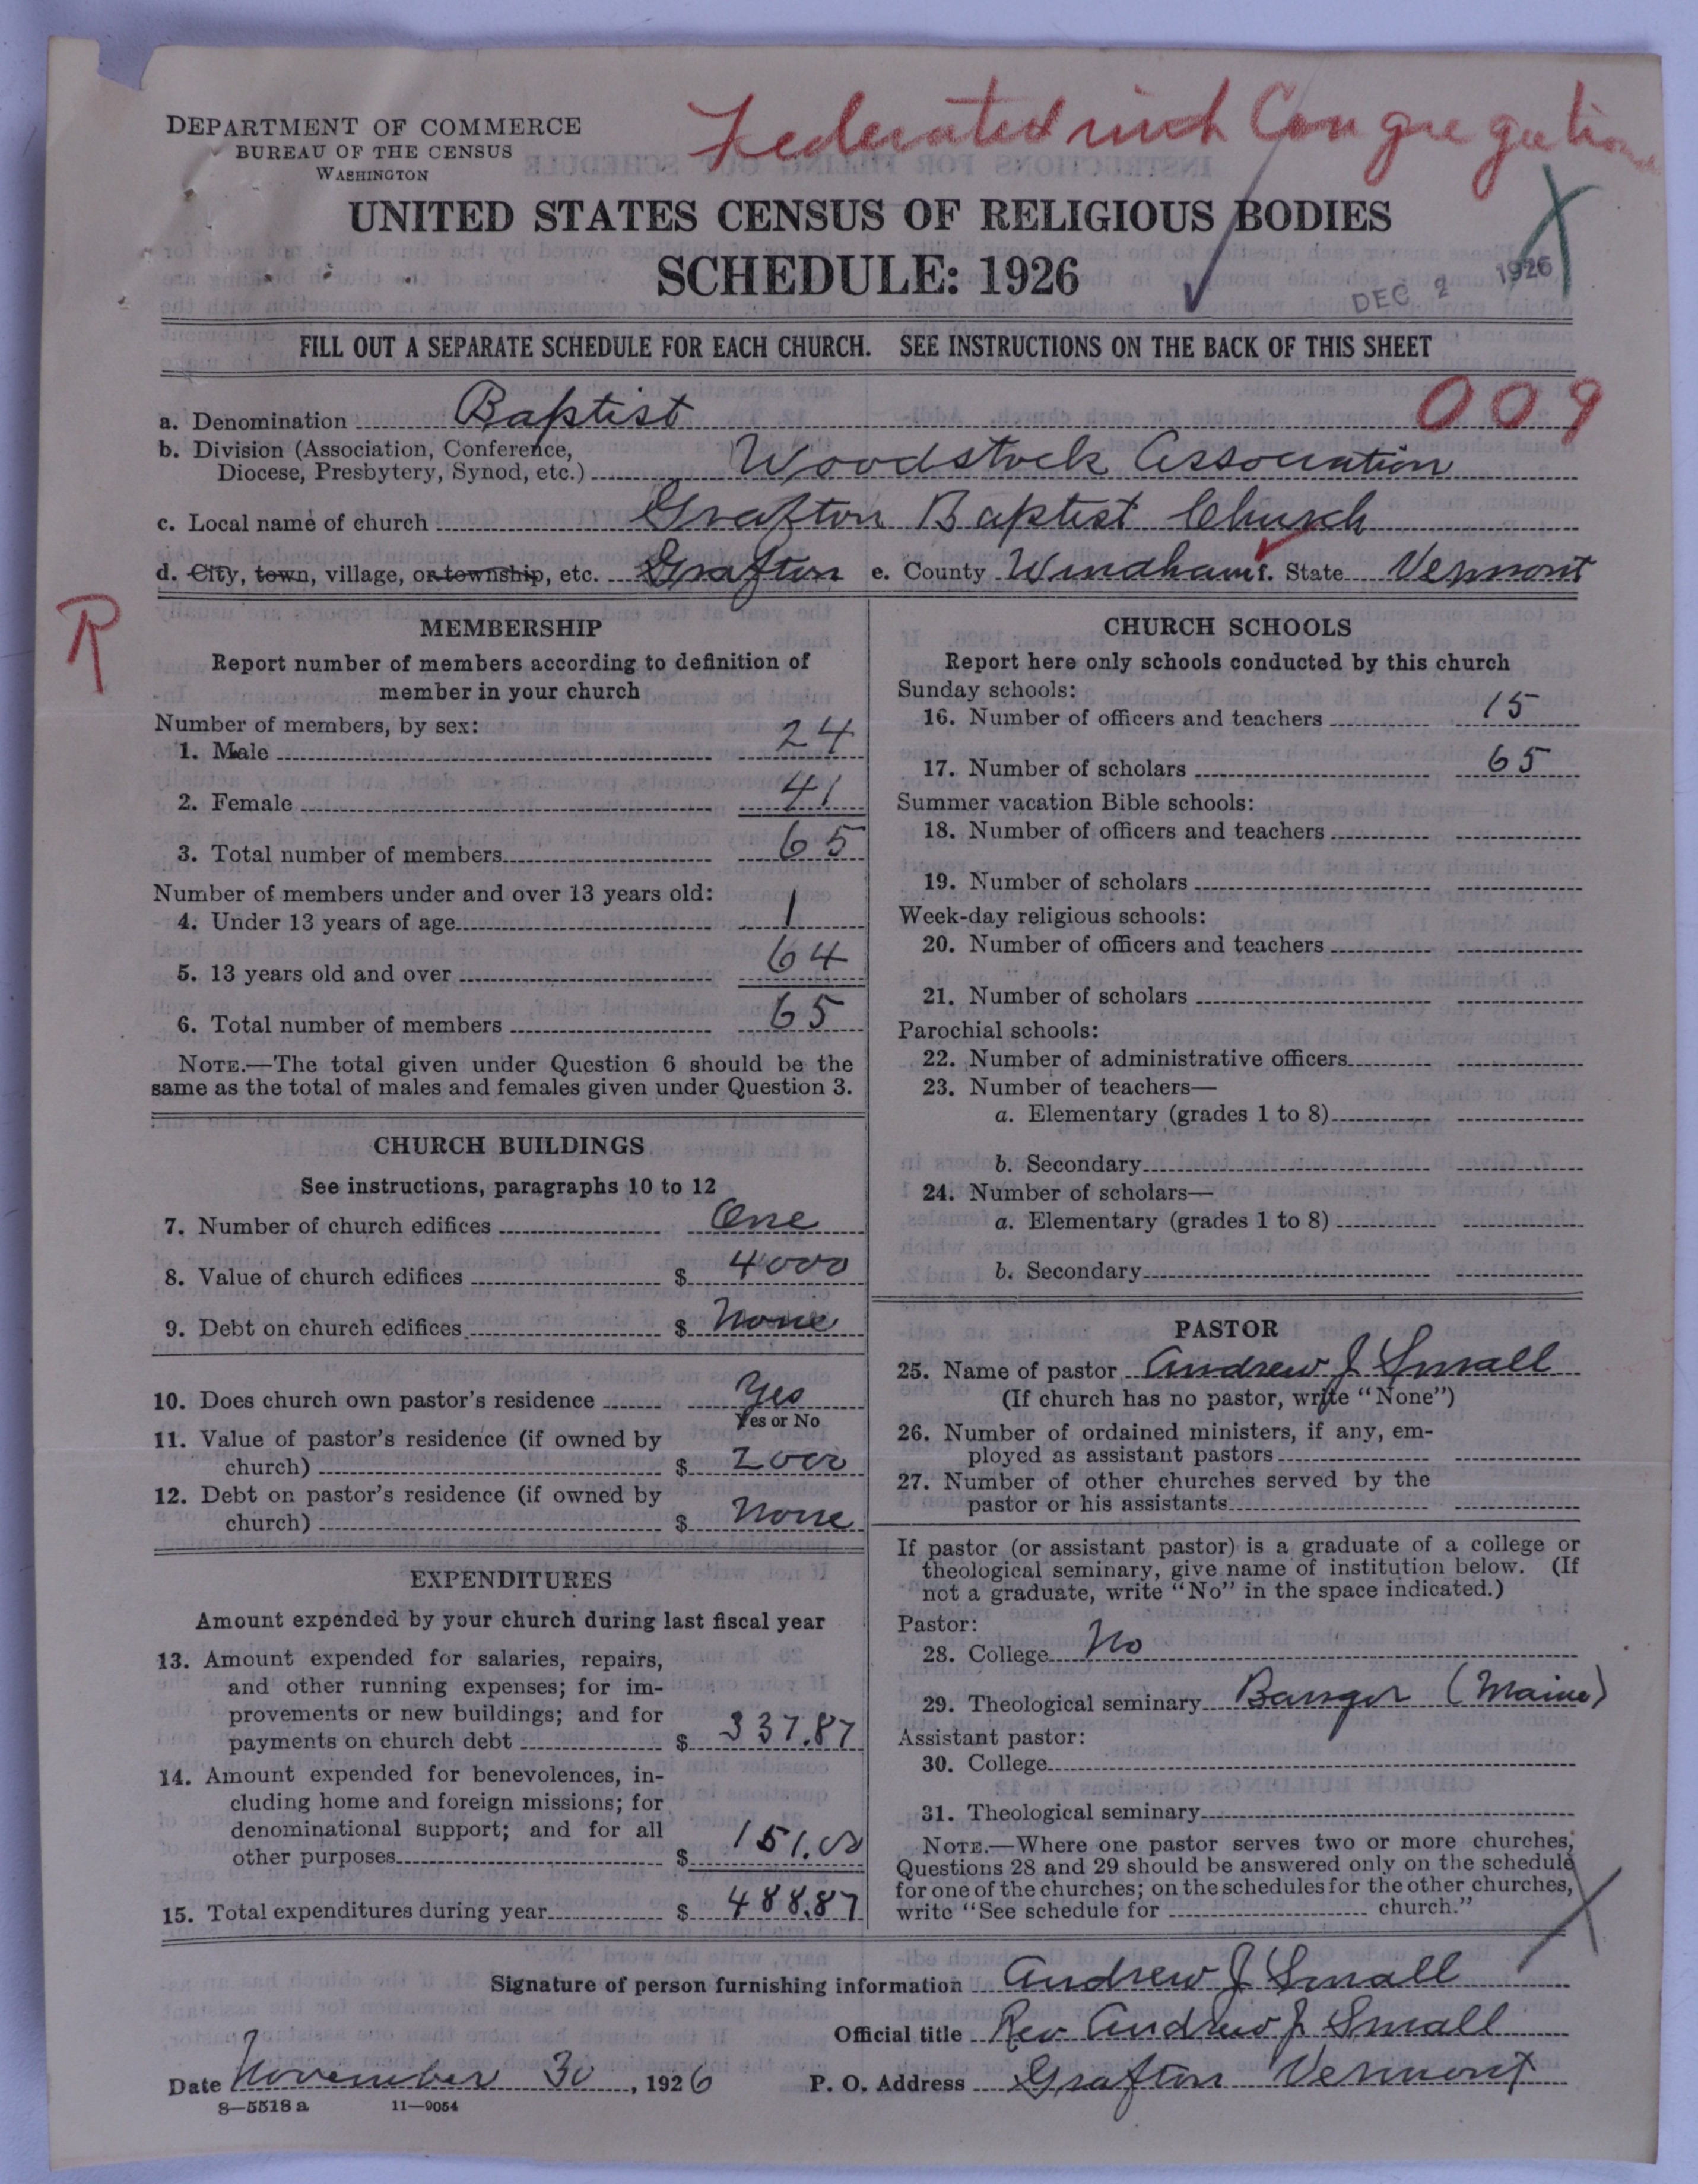 Federated with Congregational
DEPARTMENT OF COMMERCE
BUREAU OF THE CENSUS
WASHINGTON
UNITED STATES CENSUS OF RELIGIOUS BODIES
SCHEDULE: 1926
DEC 2 1926
FILL OUT A SEPARATE SCHEDULE FOR EACH CHURCH. SEE INSTRUCTIONS ON THE BACK OF THIS SHEET
009
a. Denomination Baptist
b. Division (Association, Conference,
Diocese, Presbytery, Synod, etc.) Woodstock Association
c. Local name of church Grafton Baptist Church
d. City, town, village, or township, etc. Grafton e. County Windham f. State Vermont
R
MEMBERSHIP
Report number of members according to definition of
member in your church
Number of members, by sex:
1. Male 24
2. Female 41
3. Total number of members 65
Number of members under and over 13 years old:
4. Under 13 years of age 1
5. 13 years old and over 64
6. Total number of members 65
NOTE.—The total given under Question 6 should be the
same as the total of males and females given under Question 3.
CHURCH BUILDINGS
See instructions, paragraphs 10 to 12
7. Number of church edifices One
8. Value of church edifices $ 4000
9. Debt on church edifices $ None
10. Does church own pastor's residence Yes
Yes or No
11. Value of pastor's residence (if owned by
church) $ 2000
12. Debt on pastor's residence (if owned by
church) $ None
EXPENDITURES
Amount expended by your church during last fiscal year
13. Amount expended for salaries, repairs,
and other running expenses; for im-
provements or new buildings; and for
payments on church debt $ 337.87
14. Amount expended for benevolences, in-
cluding home and foreign missions; for
denominational support; and for all
other purposes $ 151.00
15. Total expenditures during year $ 488.87
CHURCH SCHOOLS
Report here only schools conducted by this church
Sunday schools:
16. Number of officers and teachers 15
17. Number of scholars 65
Summer vacation Bible schools:
18. Number of officers and teachers
19. Number of scholars
Week-day religious schools:
20. Number of officers and teachers
21. Number of scholars
Parochial schools:
22. Number of administrative officers
23. Number of teachers—
a. Elementary (grades 1 to 8)
b. Secondary
24. Number of scholars—
a. Elementary (grades 1 to 8)
b. Secondary
PASTOR
25. Name of pastor Andrew J Small
(If church has no pastor, write "None")
26. Number of ordained ministers, if any, em-
ployed as assistant pastors
27. Number of other churches served by the
pastor or his assistants
If pastor (or assistant pastor) is a graduate of a college or
theological seminary, give name of institution below. (If
not a graduate, write "No" in the space indicated.)
Pastor:
28. College No
29. Theological seminary Bangor (Maine)
Assistant pastor:
30. College
31. Theological seminary
NOTE.—Where one pastor serves two or more churches,
Questions 28 and 29 should be answered only on the schedule
for one of the churches; on the schedules for the other churches,
write "See schedule for church."
Signature of person furnishing information Andrew J Small
Official title Rev Andrew J Small
Date November 30, 1926 P. O. Address Grafton Vermont
8—5518 a 11—9054